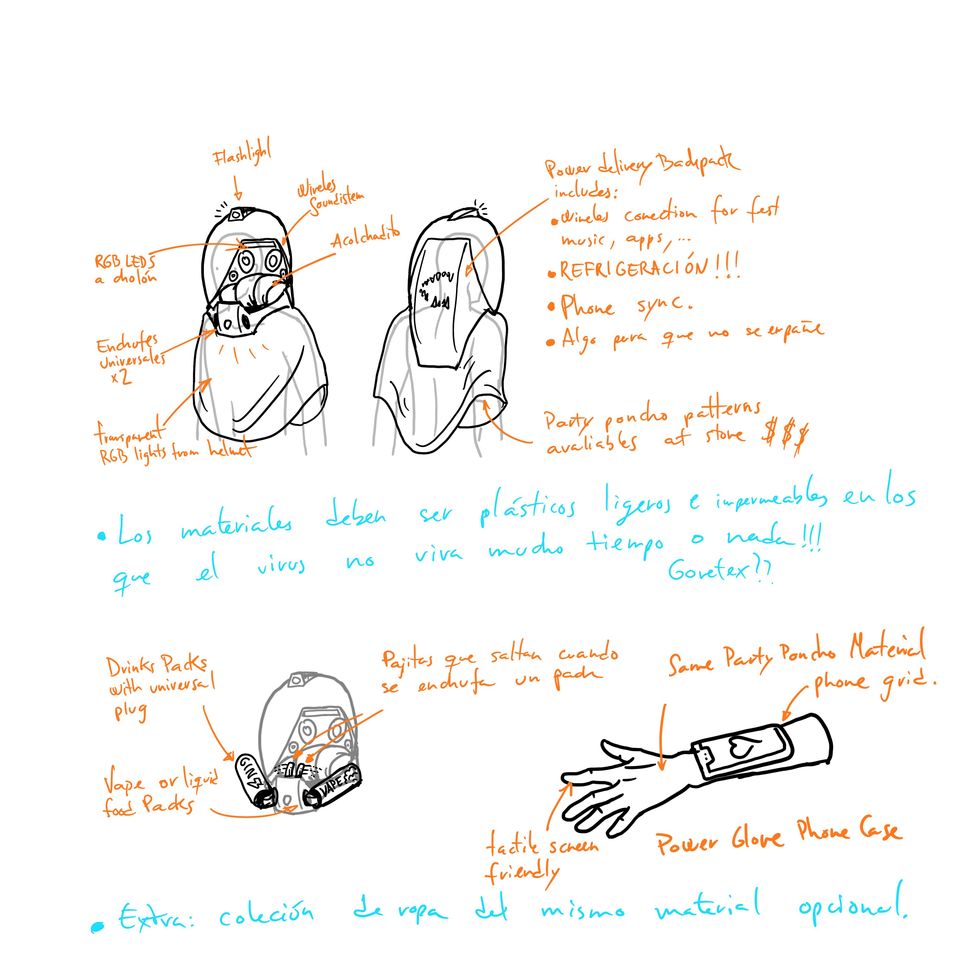 Flashlight
Wireles
Soundistem
Acolchadito
RGB LEDS
a cholón
Enchufes
universales
x2
transparent
RGB lights from helmet
Power delivery Backpack
includes:
• Wireles conection for fest
music, apps, ...
• REFRIGERACIÓN!!!
• Phone sync.
• Algo para que no se empañe
Party poncho patterns
avaliables at store $$$
• Los materiales deben ser plásticos ligeros e impermeables en los
que el virus no viva mucho tiempo o nada!!!
Goretex??
Drinks Packs
with universal
plug
Pajitas que saltan cuando
se enchufa un pack
Vape or liquid
food Packs
GIN
VAPE
Same Party Poncho Material
phone grid.
tactile screen
friendly
Power Glove Phone Case
• Extra: coleción de ropa del mismo material opcional.